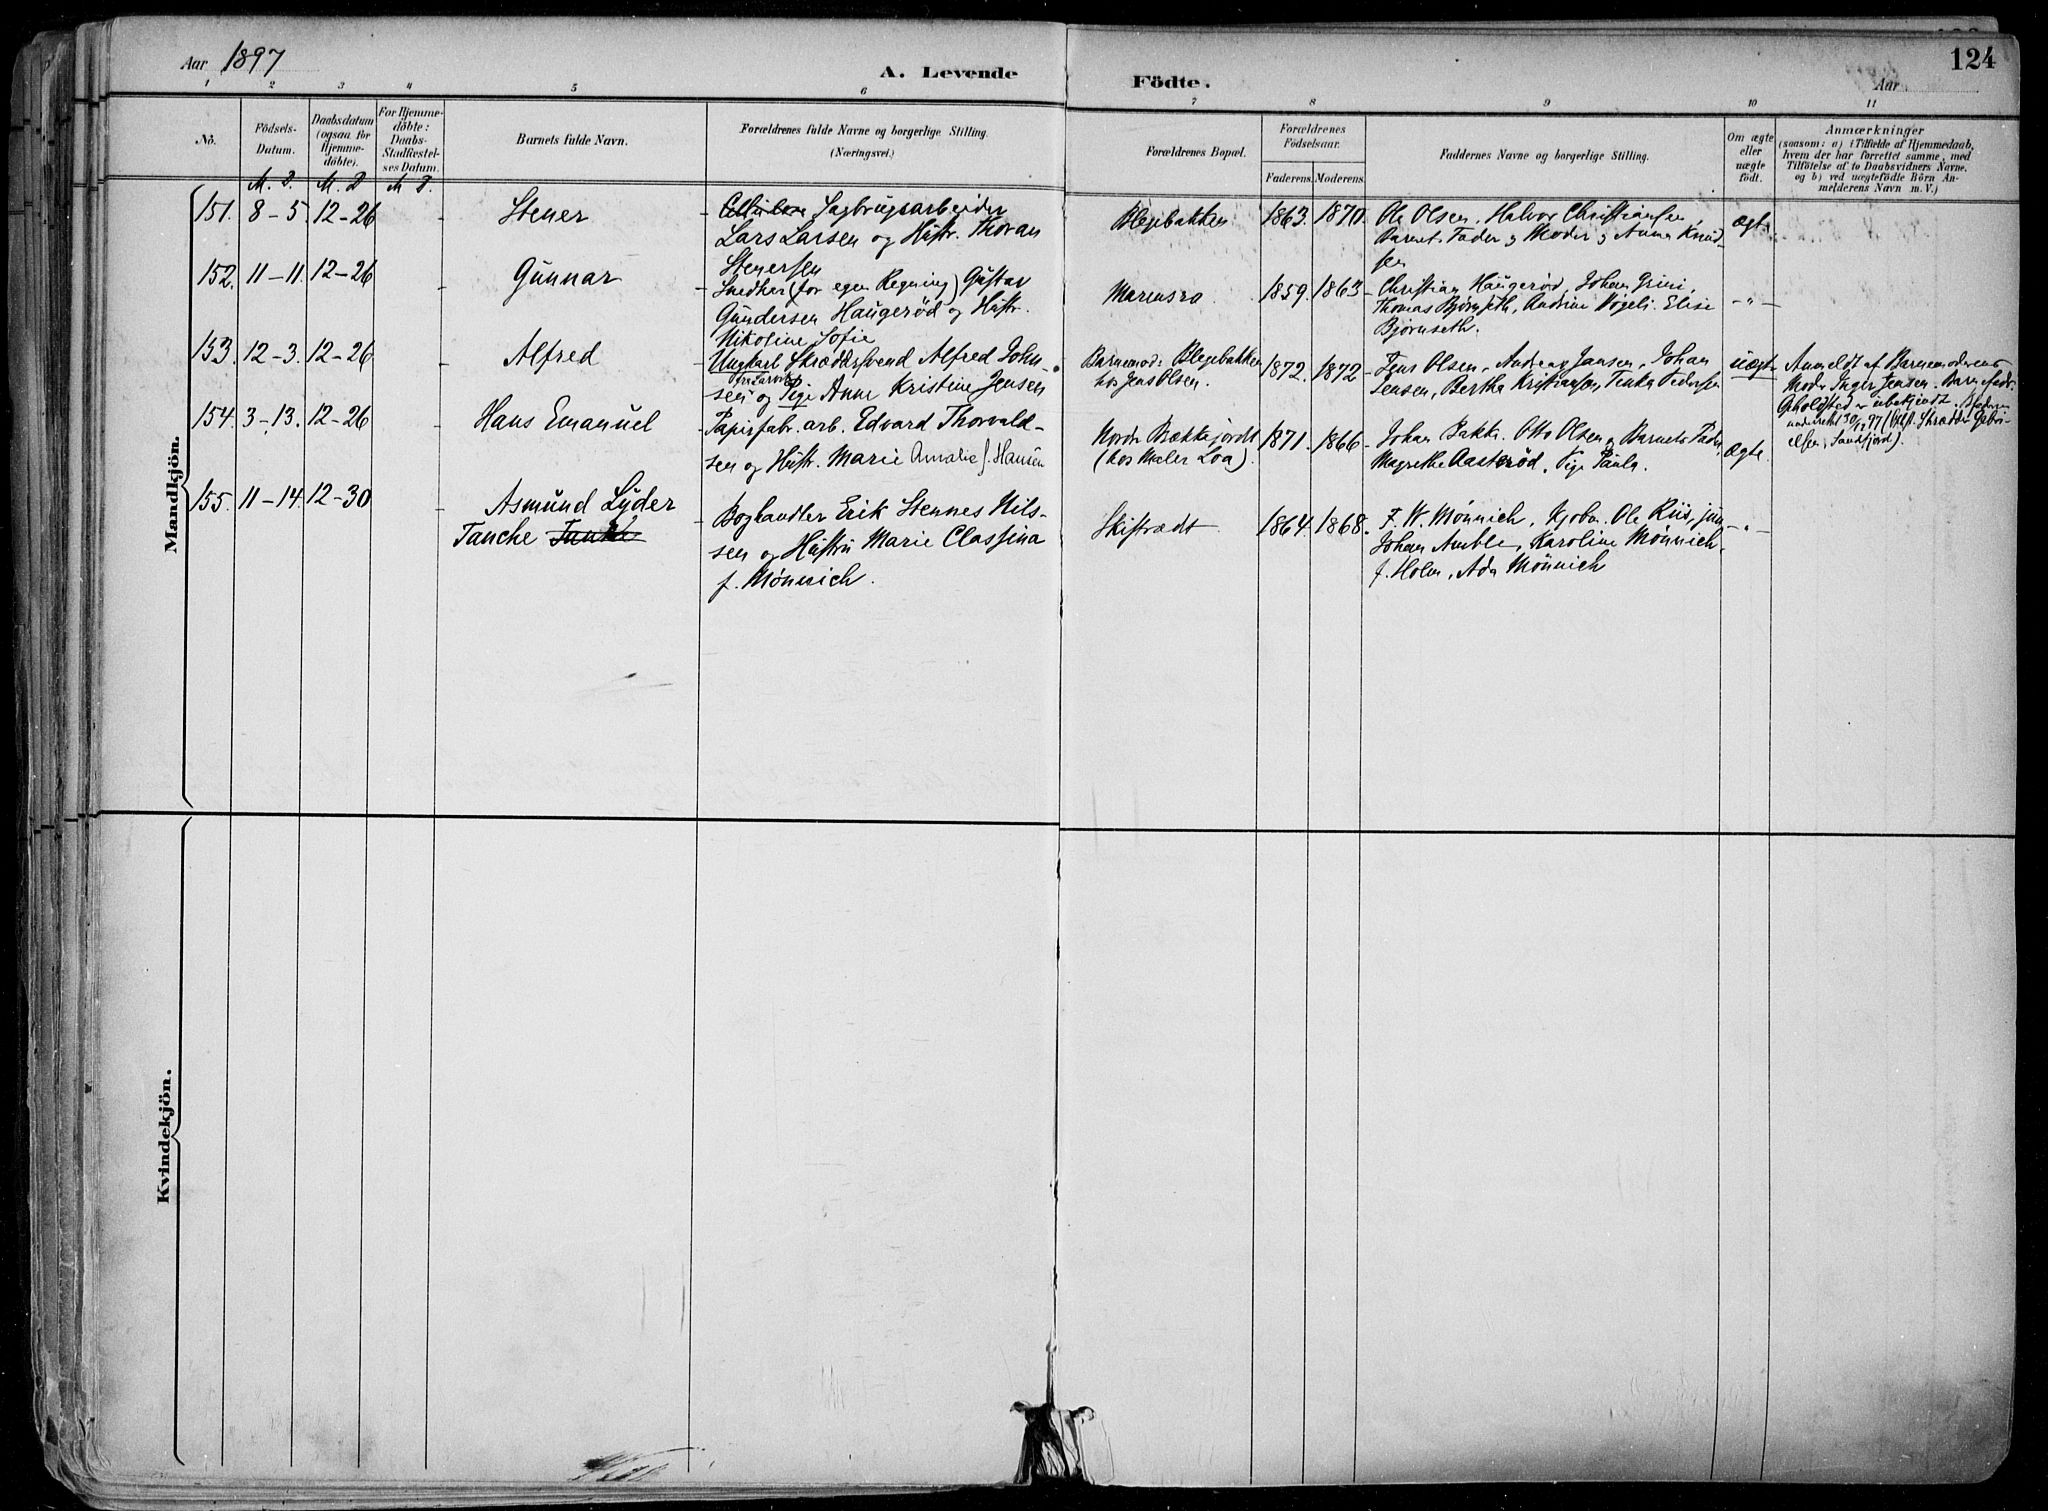 Aar 1897
A. Levende Födte.
124
Aar
1 2 3 4 5 6 7 8 9 10 11
No.
Födsels-Datum.
Daabsdatum (ogsaa for Hjemme-döbte).
For Hjemme-döbte: Daabs-Stadfæstel-ses Datum.
Barnets fulde Navn.
Forældrenes fulde Navne og borgerlige Stilling.
(Næringsvei.)
Forældrenes Bopæl.
Forældrenes Födselsaar.
Faderens. Moderens.
Faddernes Navne og borgerlige Stilling.
Om ægte eller uægte födt.
Anmærkninger
(saasom: a) i Tilfælde af Hjemmedaab,
hvem der har forrettet samme, med
Tilföielse af to Daabsvidners Navne.
og b) ved uægtefödte Börn An-
melderens Navn m. V.)
M. D. M. D M D
Mandkjön.
151. 8-5. 12-26 - Stener - Sagbrugsarbeider
Lars Larsen og Hustr. Thoran
Stenersen
Blegebakken 1863. 1870. Ole Olsen, Halvor Christiansen,
Barnets Fader og Moder og Anna Knud-
sen
ægte
152. 11-11. 12-26 - Gunnar Snedker (for egen Regning) Gustav
Gundersen Haugerød og Hustr.
Nikoline Sofie
Marensro 1859. 1863 - Christian Haugerød, Johan Grini,
Thomas Bjørnseth, Andrine Vøgeli, Elise
Bjørnseth.
-"-
153. 12-3. 12-26 - Alfred - Ungkarl Skræddersvend Alfred John-
sen og Pige Anne Kristine Jensen
fra Larvik
Barnemod: Blegebakken
hos Jens Olsen.
1872. 1872 - Jens Olsen, Andreas Jansen, Johan
Jensen, Bertha Kristiansen, Tinka Pedersen
uægte
Anmeldt af Barnemoderens
Moder Inger Jensen. Barnefad:
Opholdsted er ubekjendt.
Sandefjord).
154. 3-13. 12-26 Hans Emanuel - Papirfabr. arb. Edvard Thorvald-
sen og Hustr. Marie Amalie f. Hansen
Nordre Bækkejordt
(hos Maler Loa).
1871. 1866 - Johan Bakke, Otto Olsen og Barnets Fader,
Magrethe Aasterød, Pige Paula
ægte.
155. 11-14. 12-30 - Asmund Lyder
Tanche Tanke
- Boghandler Erik Stennes Nils-
sen og Hustru Marie Classina
f. Mønnich.
Skistrædt 1864. 1868. F. W. Mønnich, Kjøbm. Ole Riis, jun
Johan Amble, Karoline Mønnich
f. Holm, Ada Mønnich
-"-
Kvindekjön.